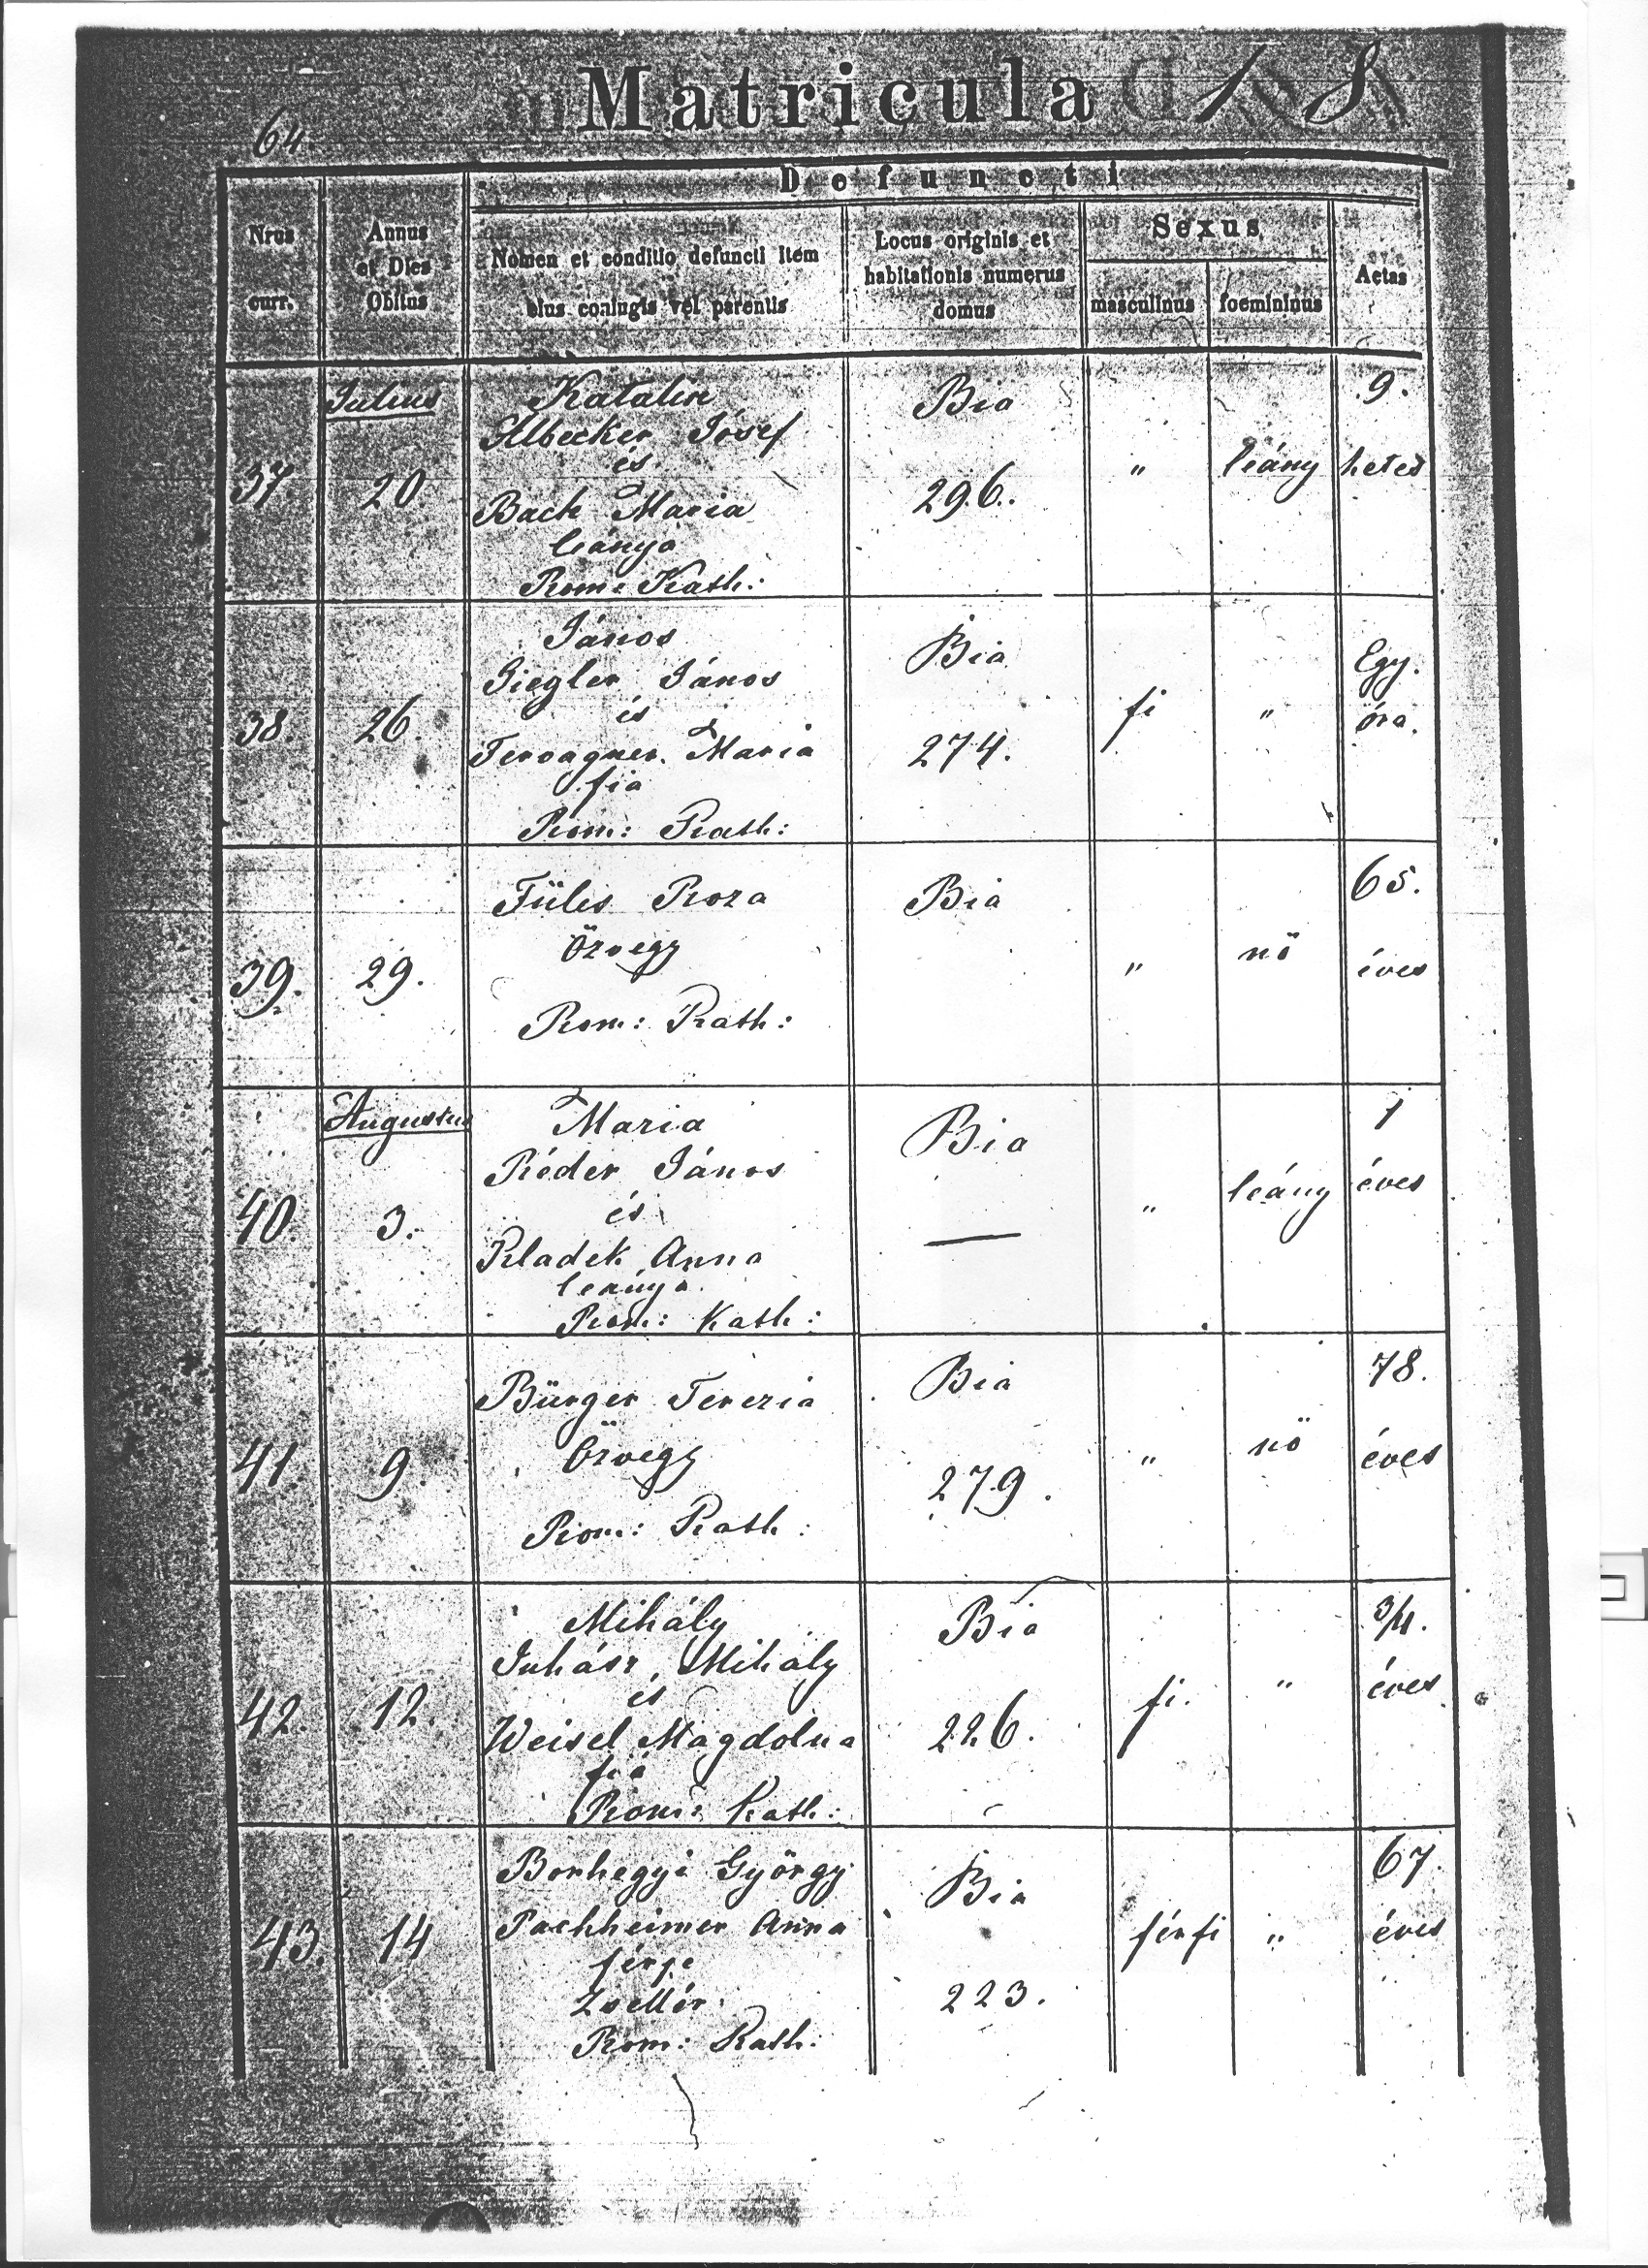 Matricula
18
64.
Defuncti
Nrus curr.
Annus et Dies Obitus
Nomen et conditio defuncti item eius coniugis vel parentis
Locus originis et habitationis numerus domus
Sexus
masculinus
foemininus
Aetas
Julius
37
20
Katalin
Albecker Jósef
és
Bach Maria
leánya
Rom: Kath:
Bia
296.
"
leány
9.
hetes
38.
26.
János
Siegler János
és
Maria
fia
Rom: Kath:
Bia
274.
fi
"
Egy.
óra.
39.
29.
Füles Roza
Özvegy
Rom: Kath:
Bia
"
nö
65.
éves
Augustus
40.
3.
Maria
Réder János
és
Kladek Anna
leánya
Rom: Kath:
Bia
—
"
leány
1
éves
41
9.
Bürger Terezia
Özvegy
Rom: Kath:
Bia
279.
"
nö
78.
éves
42.
12.
Mihály
Juhász Mihály
és
Weisel Magdolna
fia
Rom: Kath:
Bia
226.
fi.
"
3/4.
éves
43.
14
Borhegyi György
Pachheimer Anna
férje
Zsellér
Rom: Kath:
Bia
223.
férfi
"
67.
éves